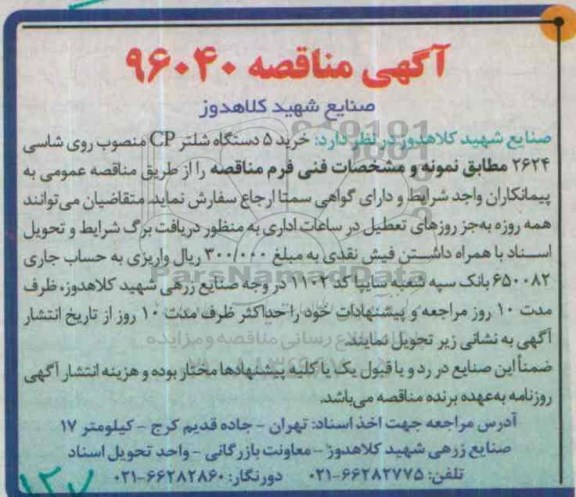 آگهی مناقصه ۹۶۰۴۰
صنایع شهید کلاهدوز
صنایع شهید کلاهدوز در نظر دارد: خرید ۵ دستگاه شلتر CP منصوب روی شاسی
۲۶۲۴ مطابق نمونه و مشخصات فنی فرم مناقصه را از طریق مناقصه عمومی به
پیمانکاران واجد شرایط و دارای گواهی سمتا ارجاع سفارش نماید. متقاضیان می‌توانند
همه روزه به‌جز روزهای تعطیل در ساعات اداری به منظور دریافت برگ شرایط و تحویل
اسناد با همراه داشتن فیش نقدی به مبلغ ۳۰۰/۰۰۰ ریال واریزی به حساب جاری
۶۵۰۰۸۲ بانک سپه شعبه سایپا کد ۱۱۰۲ در وجه صنایع زرهی شهید کلاهدوز، ظرف
مدت ۱۰ روز مراجعه و پیشنهادات خود را حداکثر ظرف مدت ۱۰ روز از تاریخ انتشار
آگهی به نشانی زیر تحویل نمایند.
ضمناً این صنایع در رد و یا قبول یک یا کلیه پیشنهادها مختار بوده و هزینه انتشار آگهی
روزنامه به‌عهده برنده مناقصه می‌باشد.
آدرس مراجعه جهت اخذ اسناد: تهران - جاده قدیم کرج - کیلومتر ۱۷
صنایع زرهی شهید کلاهدوز - معاونت بازرگانی - واحد تحویل اسناد
تلفن: ۶۶۲۸۲۷۷۵-۰۲۱ دورنگار: ۶۶۲۸۲۸۶۰-۰۲۱
ParsNamadData